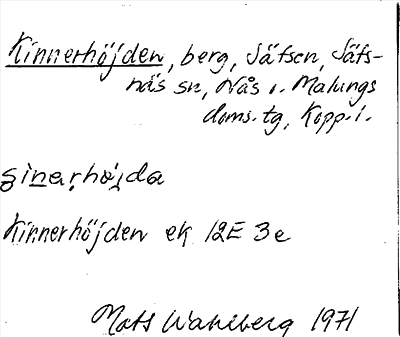 Kinnerhöjden, berg, Säfsen, Säfs-
näs sn, Nås o. Malungs
doms.tg, Kopp. l.
şinarhöjda
Kinnerhöjden ek 12E 3e
Mats Wahlberg 1971